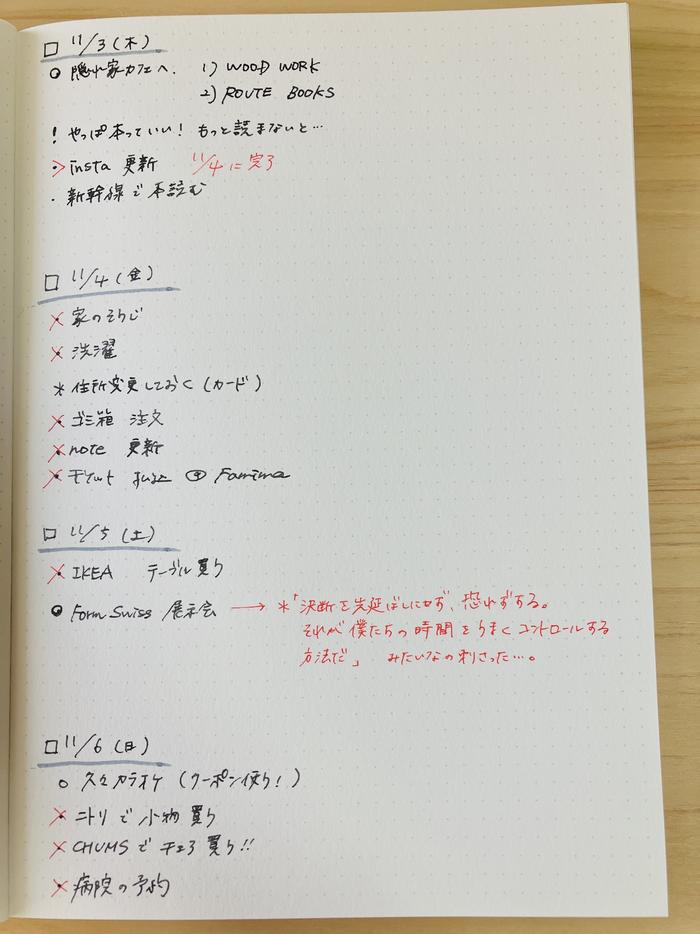 □ 11/3(木)
○ 隠れ家カフェへ. 1) WOOD WORK
2) ROUTE BOOKS
! やっぱ本っていい! もっと読まないと…
> insta 更新 11/4 に完了
・新幹線で本読む
□ 11/4(金)
× 家のそうじ
× 洗濯
* 住所変更しておく(カード)
× ゴミ箱 注文
× note 更新
× チケット 払込 @ Famima
□ 11/5(土)
× IKEA テーブル買う
○ Form Swiss 展示会 → *「決断を先延ばしにせず、恐れずする。
それが僕たちの時間をうまくコントロールする
方法だ」 みたいなの刺さった…。
□ 11/6(日)
○ 久々カラオケ(クーポン使う!)
× ニトリで小物買う
× CHUMSでチェア買う!!
× 病院の予約